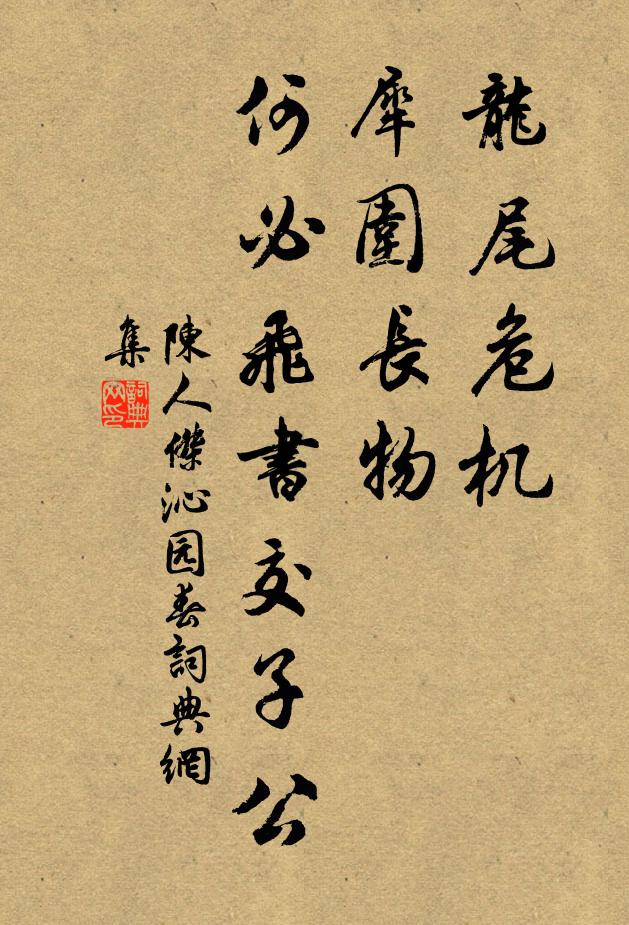 龍尾危机
犀圍長物
何必飛書交子公
陳人傑沁园春詞典網
集
詞典网印